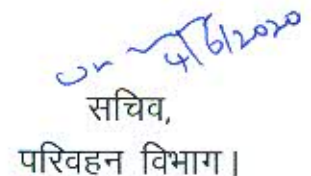 4/6/2020
सचिव,
परिवहन विभाग।